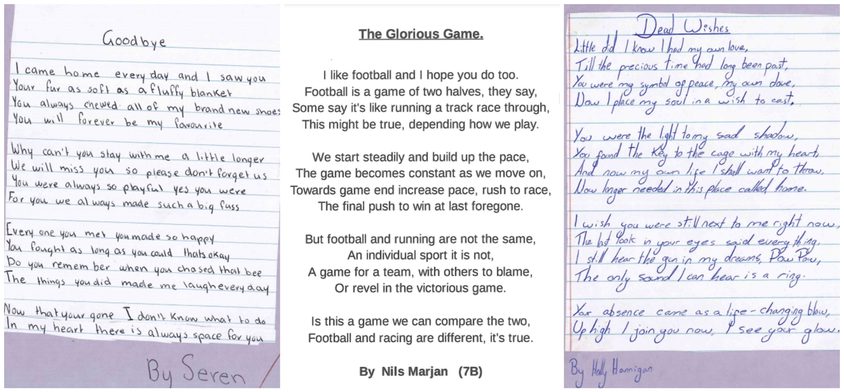 Goodbye
I came home every day and I saw you
Your fur as soft as a fluffy blanket
You always chewed all of my brand new shoes
You will forever be my favourite
Why can't you stay with me a little longer
We will miss you so please don't forget us
You were always so playful yes you were
For you we always made such a big fuss
Every one you met you made so happy
You fought as long as you could thats okay
Do you remember when you chased that bee
The things you did made me laugh every day
Now that your gone I don't know what to do
In my heart there is always space for you
By Seren
The Glorious Game.
I like football and I hope you do too.
Football is a game of two halves, they say,
Some say it's like running a track race through,
This might be true, depending how we play.
We start steadily and build up the pace,
The game becomes constant as we move on,
Towards game end increase pace, rush to race,
The final push to win at last foregone.
But football and running are not the same,
An individual sport it is not,
A game for a team, with others to blame,
Or revel in the victorious game.
Is this a game we can compare the two,
Football and racing are different, it's true.
By Nils Marjan (7B)
Dead Wishes
Little did I know I had my own love,
Till the precious time had long been past,
You were my symbol of peace, my own dove,
Now I place my soul in a wish to cast.
You were the light to my sad shadow,
You found the key to the cage with my heart,
And now my own life I shall want to throw,
Now longer needed in this place called home.
I wish you were still next to me right now,
The last look in your eyes said everything.
I still hear the gun in my dreams, Pow Pow,
The only sound I can hear is a ring.
Your absence came as a life-changing blow,
Up high I join you now, I see your glow.
By Holly Hannigan